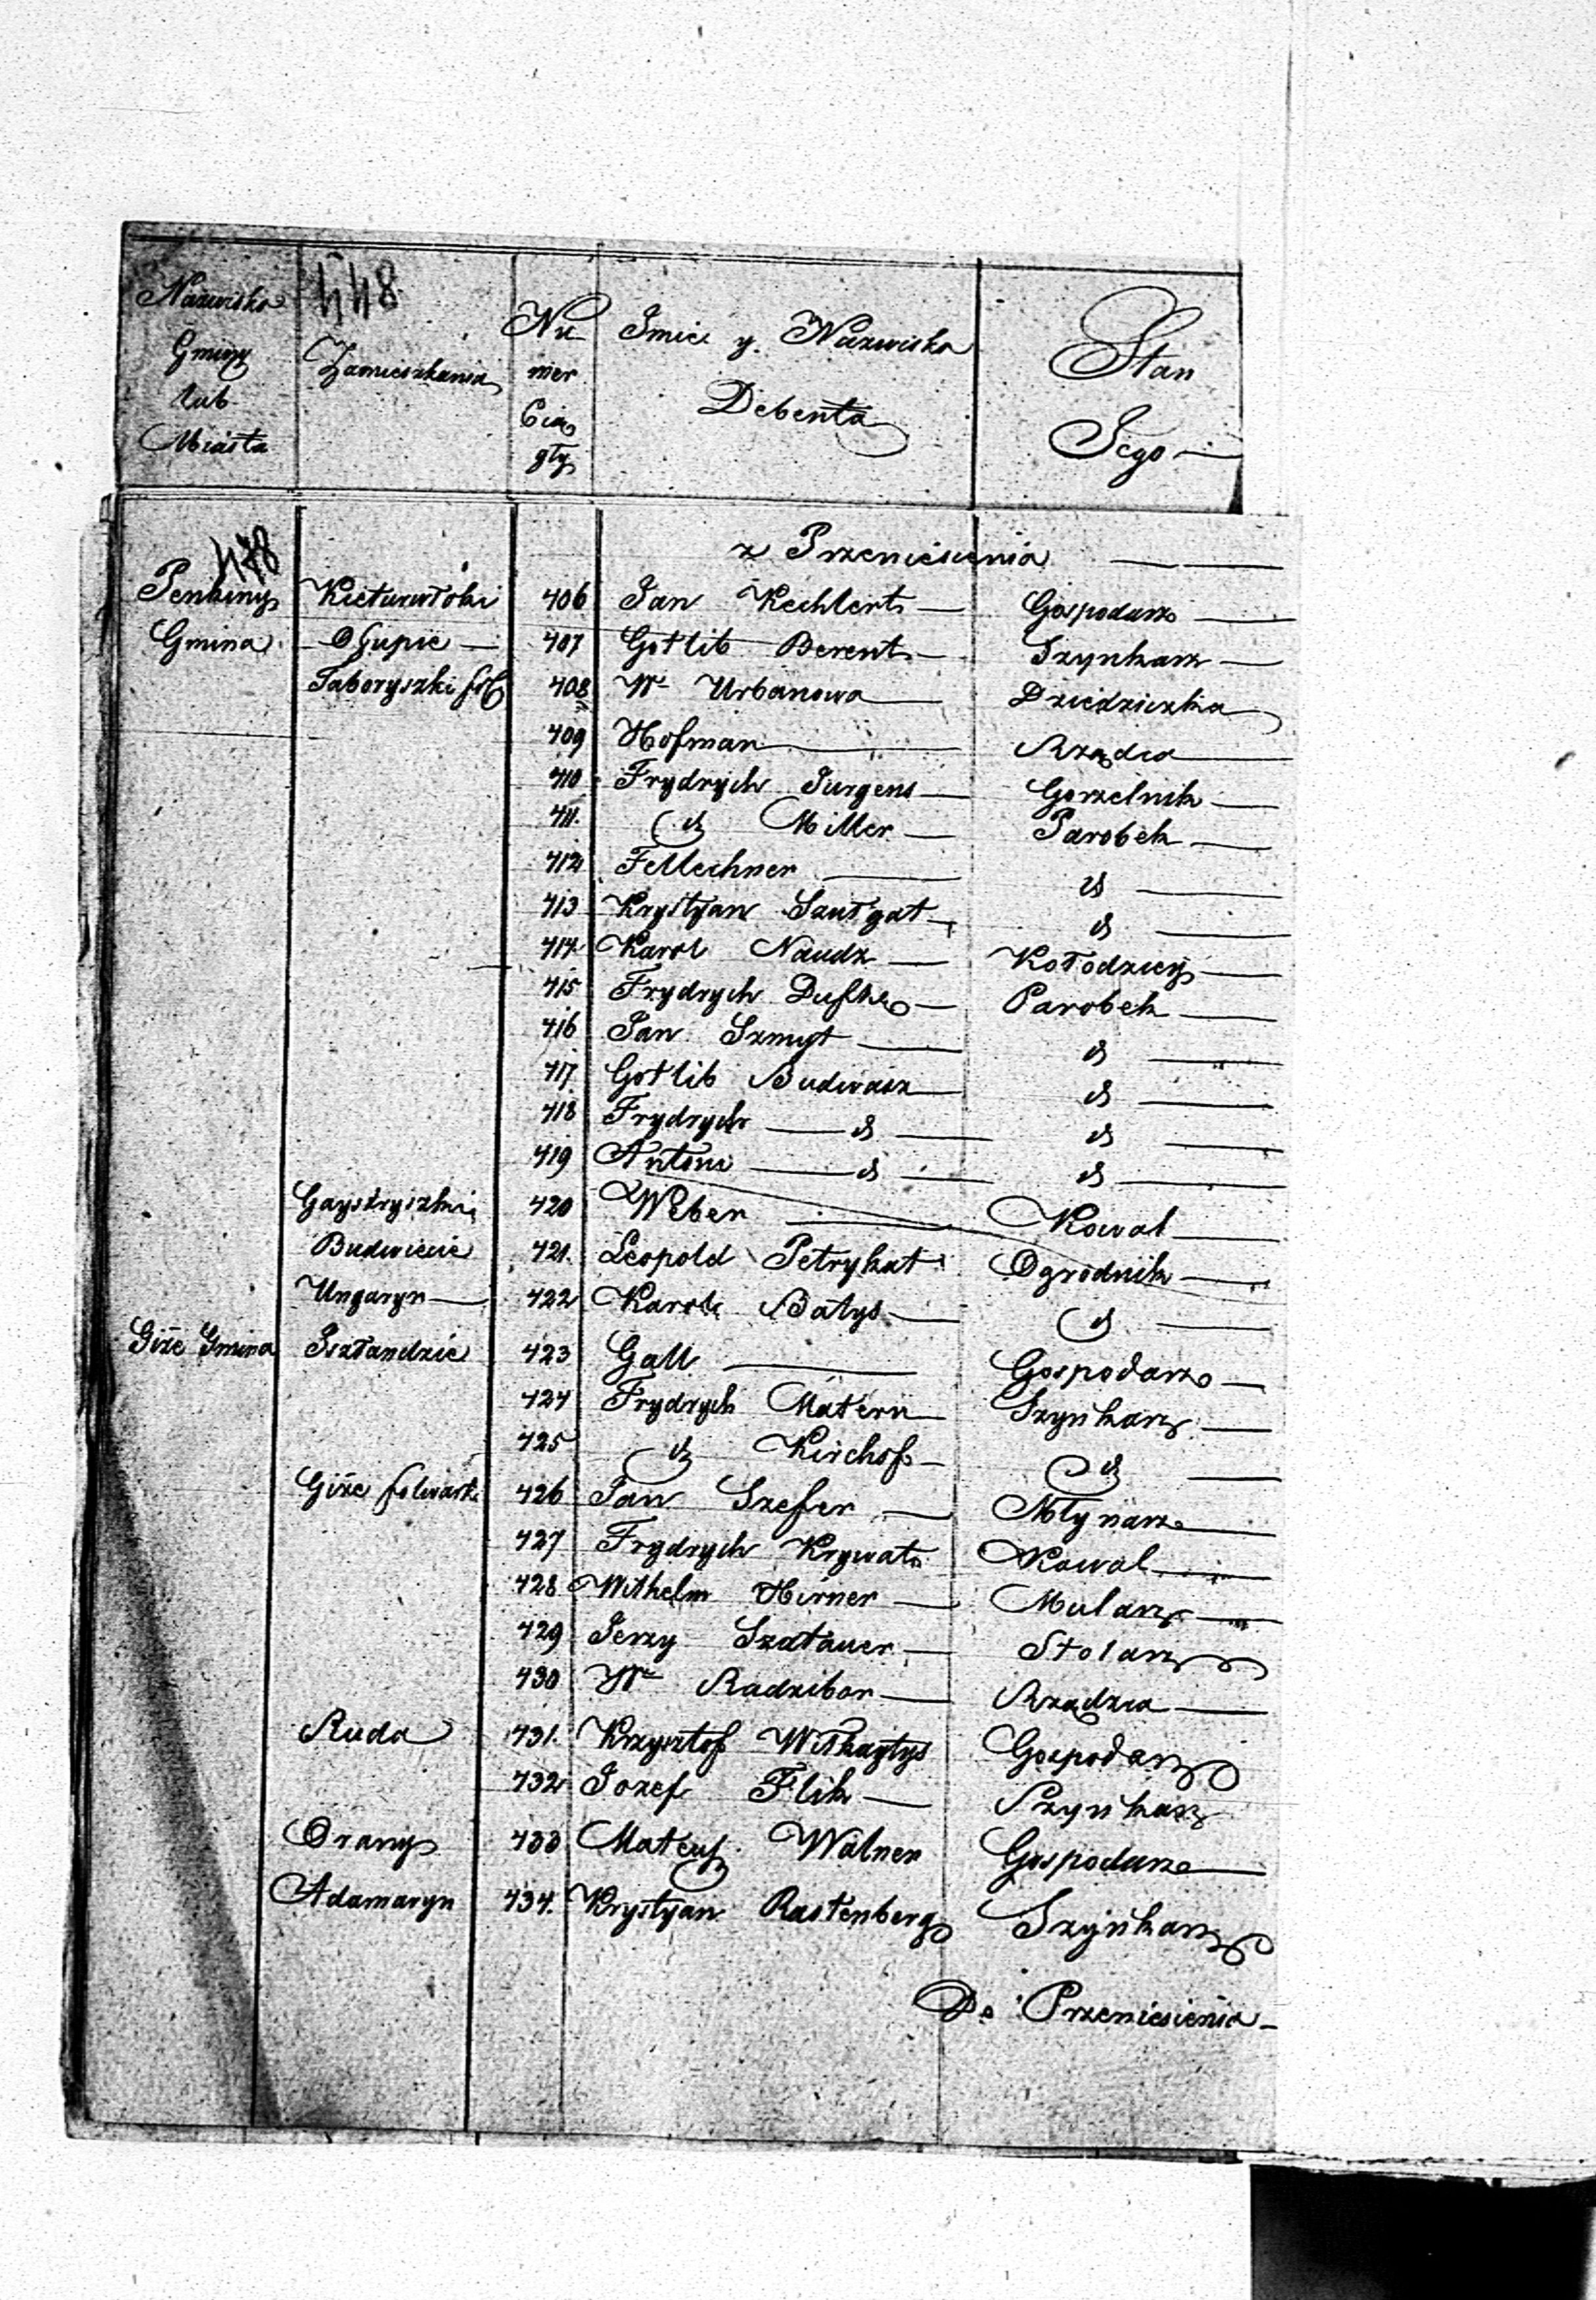 Nazwisko Gminy lub Miasta
448
Zamieszkania
Numer Ciągły
Imie y Nazwisko Debenta
Stan Jego
z Przeniesienia
478
Penkiny Kieturwłoki 406 Jan Kechlert Gospodarz
Gmina Ołupie 407 Gotlib Berent Szynkarz
Taboryszki fol 408 W. Urbanowa Dziedziczka
409 Hofman Rządca
410 Frydrych Jurgens Gorzelnik
411. d Miller Parobek
412 Fellechner d
413 Krystyan Szutgat d
414 Karol Naudz Kołodziey
415 Frydrych Dufke Parobek
416 Jan Szmyt d
417 Gotlib Budwasz d
418 Frydrych d d
419 Antoni d d
Gaystryszki 420 Weber Kowal
Budwiecie 421. Leopold Petrykat Ogrodnik
Ungaryn 422 Karol Batys d
Giże Gmina Iszlandzie 423 Gall Gospodarz
424 Frydrych Matern Szynkarz
425 d Kirchof d
Giże folwark 426 Jan Szefer Młynarz
427 Frydrych Krywat Kowal
428 Wilhelm Hirner Mularz
429 Jerzy Szatauer Stolarz
430 W. Radzibor Rządzca
Ruda 431. Krzysztof Witkaytys Gospodarz
432 Jozef Flik Szynkarz
Orany 433 Mateusz Walner Gospodarz
Adamaryn 434. Krystyan Rastenberg Szynkarz
Do Przeniesienia